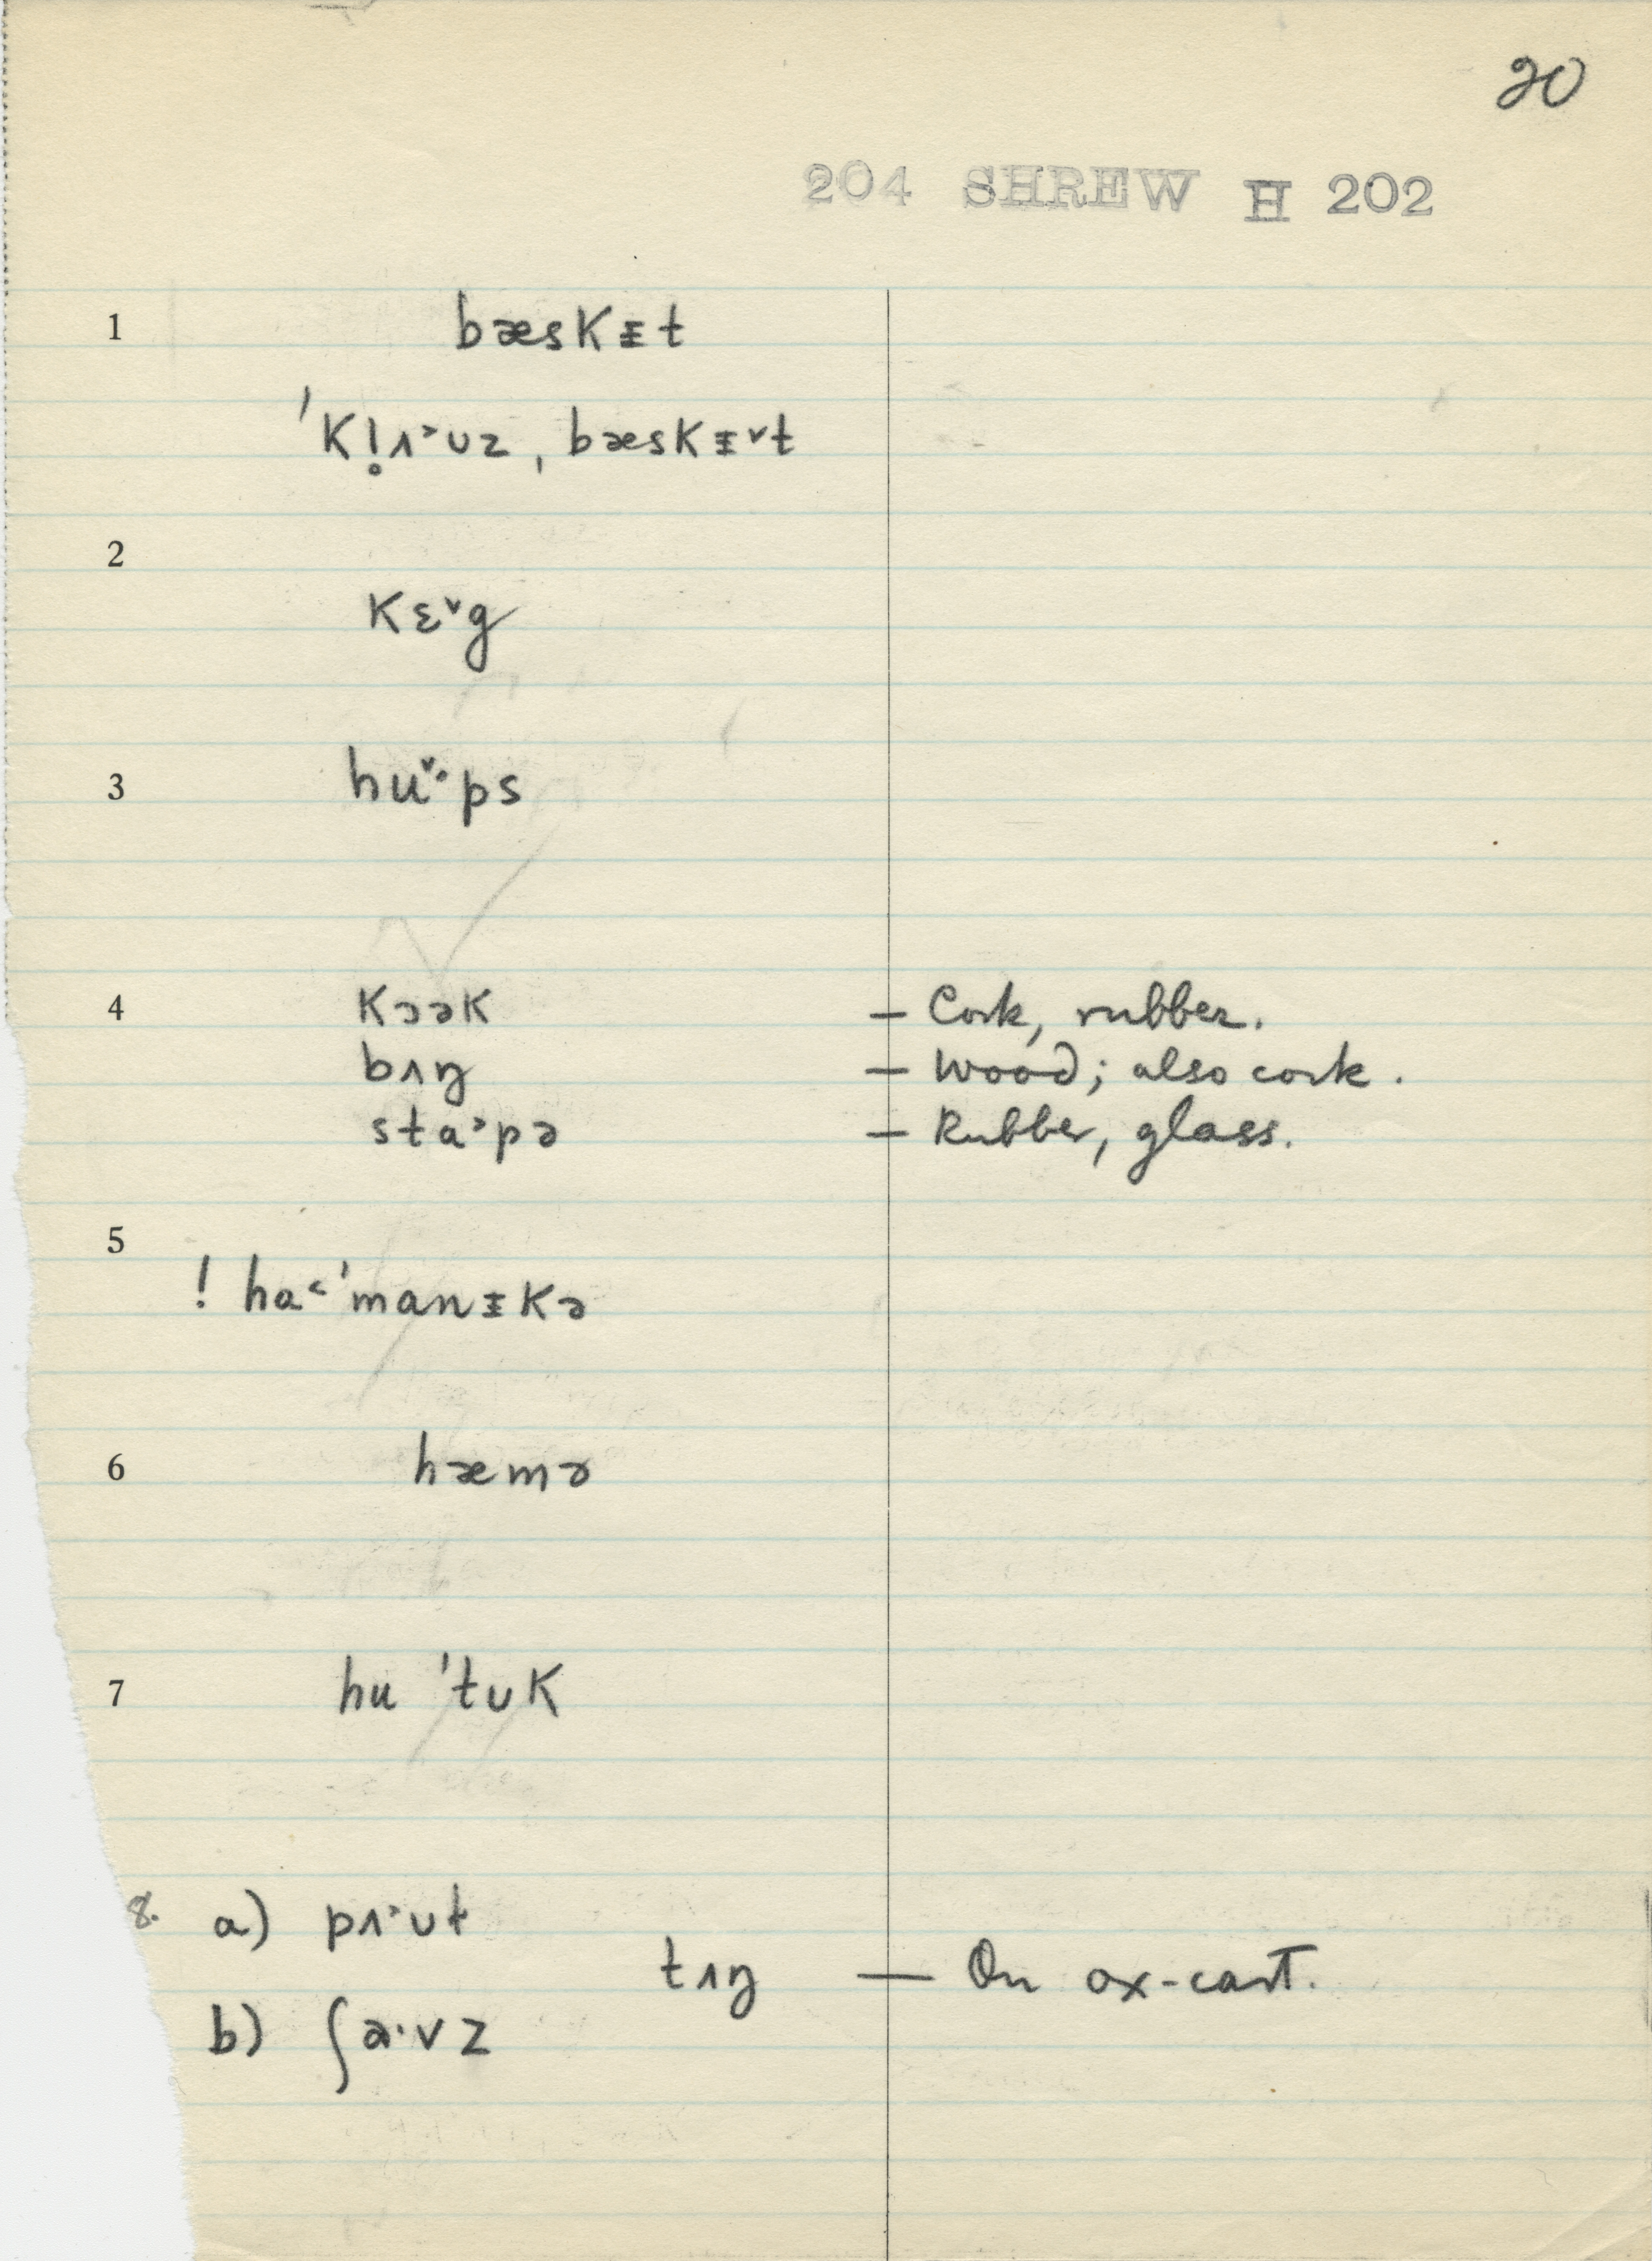 20
204 SHREW H 202
1 bæskɪ̵t
ˈk!̥ʌ˃ʊz, bæskɪ̵˅t
2
kɛ˅g
3 hu˅·ps
4 kɔək — Cork, rubber.
bʌŋ — Wood; also cork.
sta˃pə — Rubber, glass.
5
! ha˂ˈmanɪ̵kə
6 hæmə
7 hu ˈtʊk
8. a) pʌ˃ʊt
tʌŋ — On ox-cart.
b) ʃa·vz